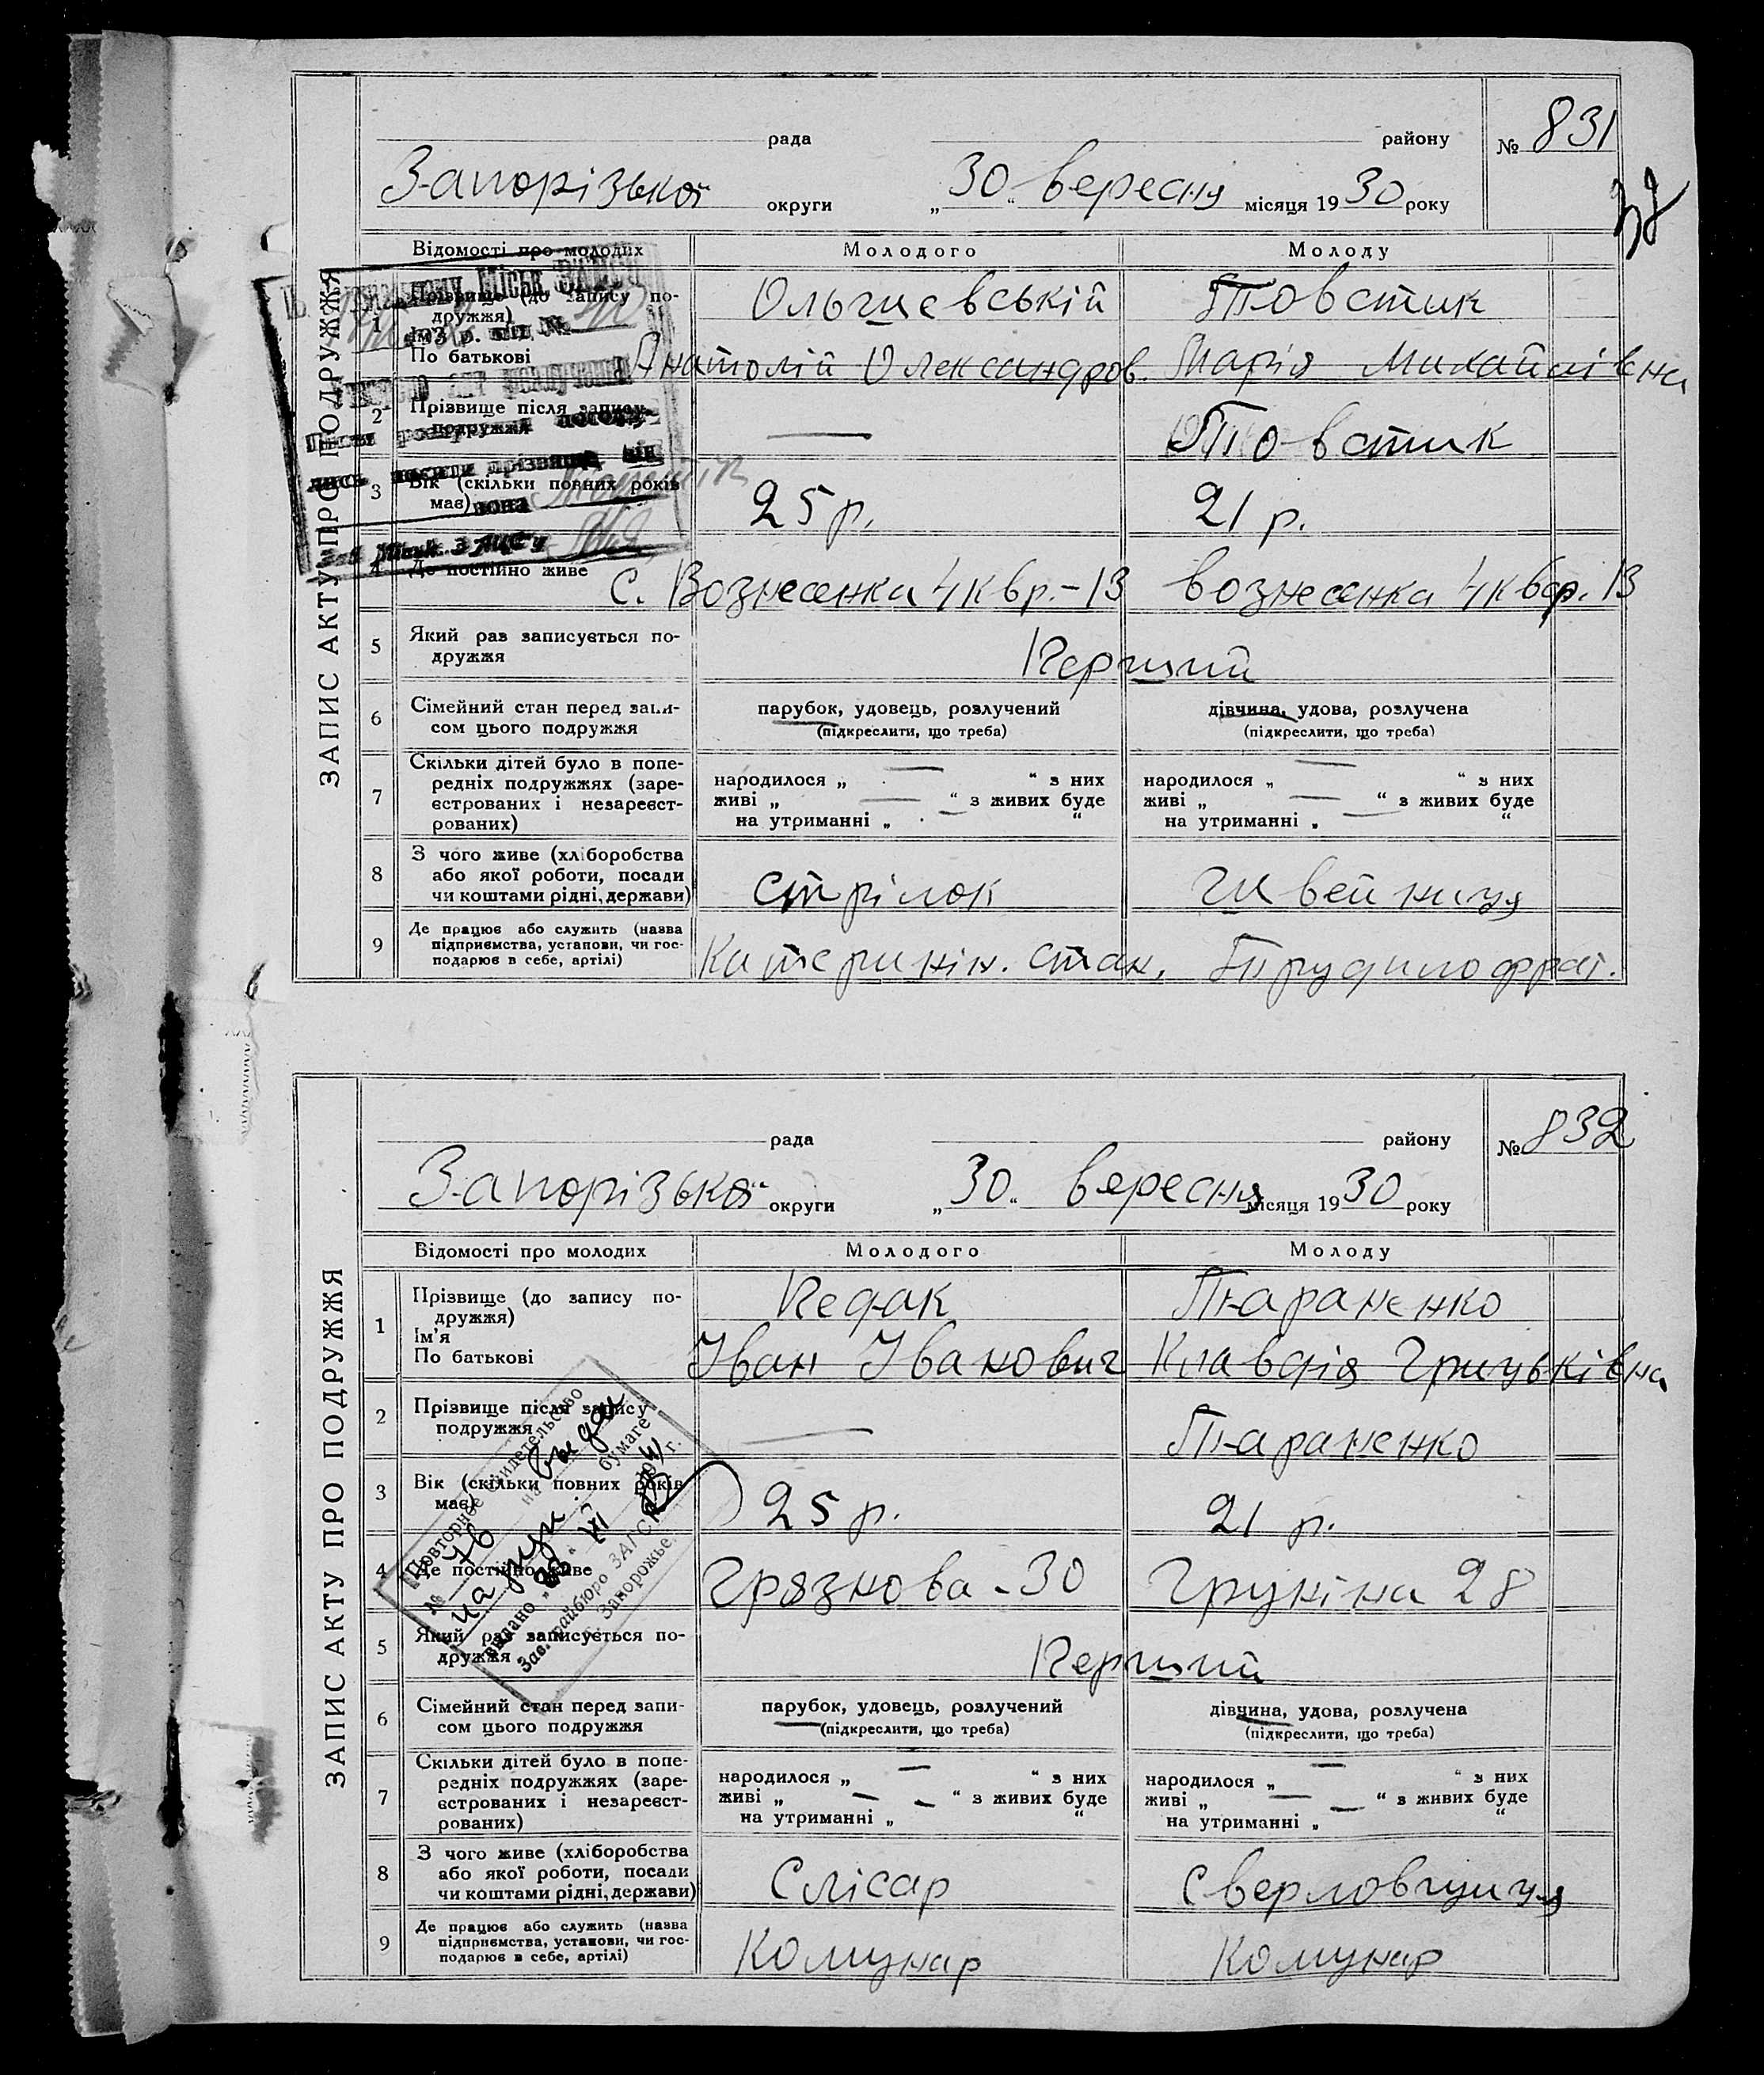 ЗАПИС АКТУ ПРО ПОДРУЖЖЯ
рада району № 831
Запорізької округи „30“ вересня місяця 1930 року
38
Відомості про молодих Молодого Молоду
1 Прізвище (до запису по-
дружжя)
Ім'я
По батькові
Ольшевській Товстик
Анатолій Олександров. Марія Михайлівна
2 Прізвище після запису
подружжя
— Товстик
3 Вік (скільки повних років
має)
25 р. 21 р.
4 Де постійно живе
с. Вознесенка 4 квр.-13 Вознесенка 4 квар. 13
5 Який раз записується по-
дружжя
Перший
6 Сімейний стан перед запи-
сом цього подружжя
парубок, удовець, розлучений дівчина, удова, розлучена
(підкреслити, що треба) (підкреслити, що треба)
7 Скільки дітей було в попе-
редніх подружжях (заре-
єстрованих і незареєст-
рованих)
народилося „ — “ з них народилося „ — “ з них
живі „ — “ з живих буде живі „ — “ з живих буде
на утриманні „ — “ на утриманні „ — “
8 З чого живе (хліборобства
або якої роботи, посади
чи коштами рідні, держави)
Стрілок Швейниця
9 Де працює або служить (назва
підприємства, установи, чи гос-
подарює в себе, артілі)
Катеринін. стан.
Міськ.
р. від №
після
носити прізвища він
вона
ЗАПИС АКТУ ПРО ПОДРУЖЖЯ
рада району № 832
Запорізької округи „30“ вересня місяця 1930 року
Відомості про молодих Молодого Молоду
1 Прізвище (до запису по-
дружжя)
Ім'я
По батькові
Педак Тараненко
Іван Іванович Клавдія Грицьківна
2 Прізвище після запису
подружжя
— Тараненко
3 Вік (скільки повних років
має)
25 р. 21 р.
4 Де постійно живе
Грязнова - 30 28
5 Який раз записується по-
дружжя
Перший
6 Сімейний стан перед запи-
сом цього подружжя
парубок, удовець, розлучений дівчина, удова, розлучена
(підкреслити, що треба) (підкреслити, що треба)
7 Скільки дітей було в попе-
редніх подружжях (заре-
єстрованих і незареєст-
рованих)
народилося „ — “ з них народилося „ — “ з них
живі „ — — “ з живих буде живі „ — — “ з живих буде
на утриманні „ “ на утриманні „ “
8 З чого живе (хліборобства
або якої роботи, посади
чи коштами рідні, держави)
Слісар Сверловщиця
9 Де працює або служить (назва
підприємства, установи, чи гос-
подарює в себе, артілі)
Комунар Комунар
Повторное свидетельство
№ 76 на бумаге
выдано г.
Зав. райбюро ЗАГС
г. Запорожье